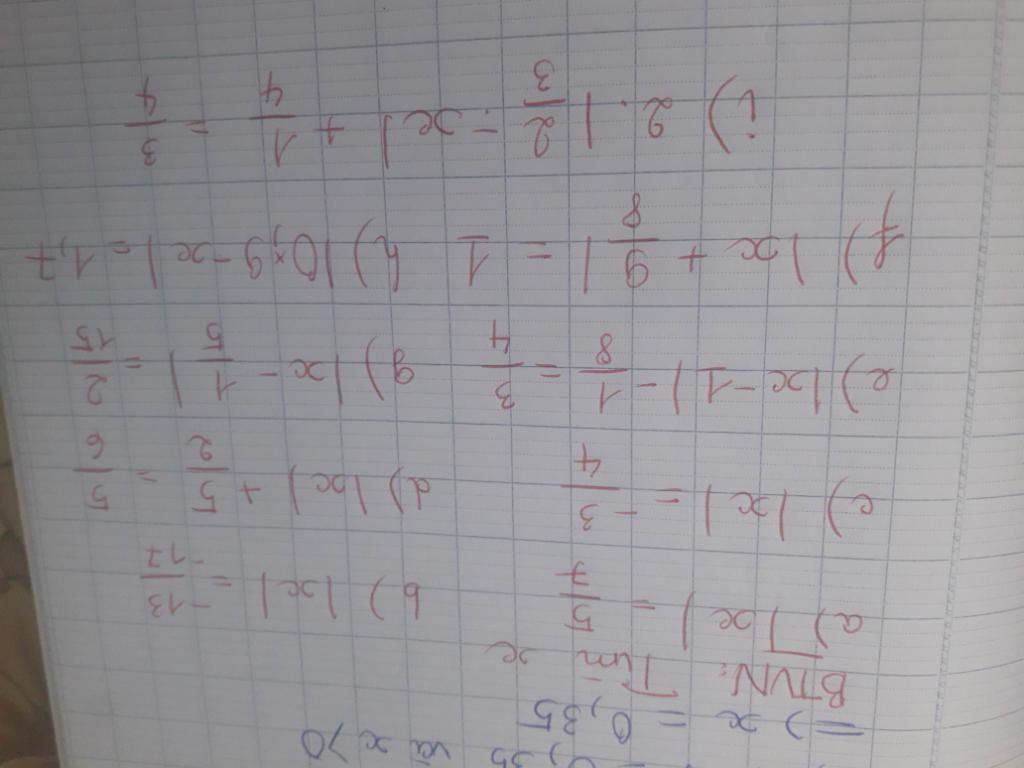 0,35 và x > 0
=> x = 0,35
BTVN: Tìm x
a) |x| = 5/7 b) |x| = -13/-17
c) |x| = -3/4 d) |x| + 5/2 = 5/6
e) |x - 1| - 1/8 = 3/4 g) |x - 1/5| = 2/15
f) |x + 9/8| = 1 h) |0,9 - x| = 1,7
i) 2.|2/3 - x| + 1/4 = 3/4